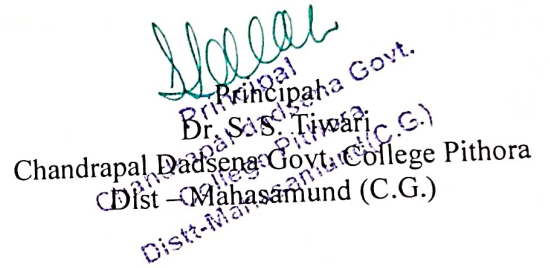 Principal
Dr. S. S. Tiwari
Chandrapal Dadsena Govt. College Pithora
Dist – Mahasamund (C.G.)
Principal
Chandrapal Dadsena Govt.
College Pithora
Distt-Mahasamund (C.G.)